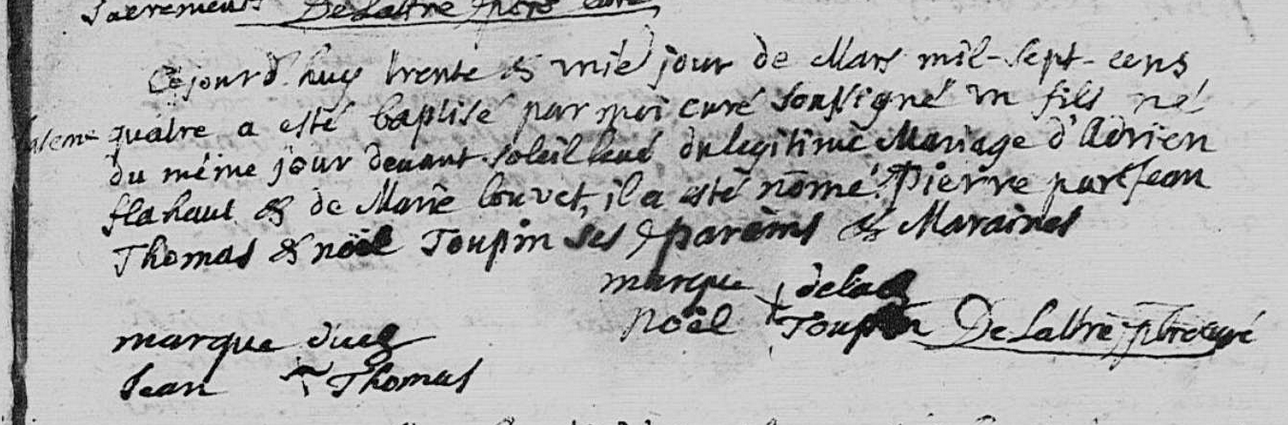 Sacrements DeLattre pbre curé
Cejourd'huy trente & vnié jour de Mars mil-sept-cens
quatre a esté baptisé par moi curé soussigné vn fils né
du méme jour devant soleil levé du legitime Mariage d'Adrien
flahaut & de Marie louvet, il a esté nomé Pierre par Jean
Thomas & noël Toupin ses pareins & Maraines
marque de la
noël Toupin DeLattre pbre curé
marque
Jean Thomas